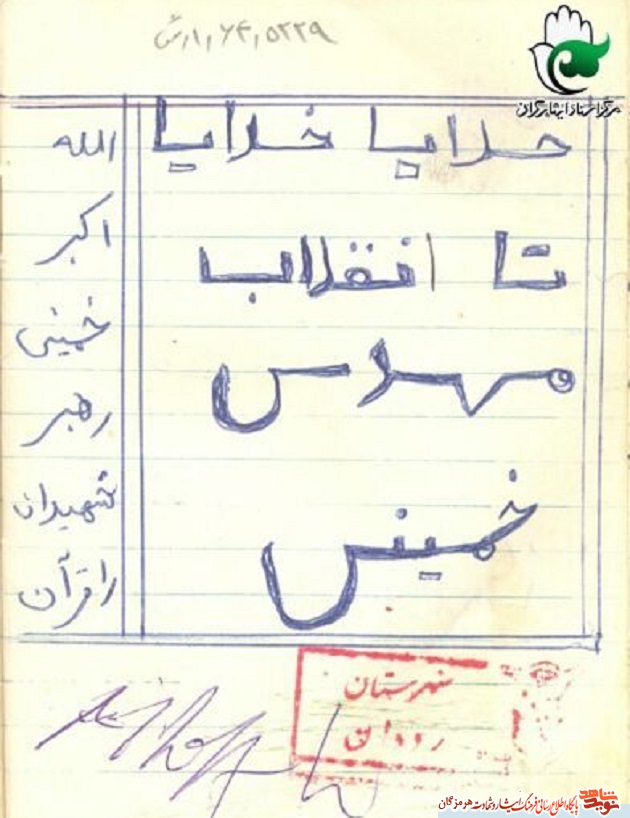 مرکز اسناد ایثارگران
خدایا خدایا
تا انقلاب
مهدی
خمینی
الله
اکبر
خمینی
رهبر
شهیدان
را قرآن
شهرستان
رودان
نوید شاهد پایگاه اطلاع رسانی فرهنگ ایثار و شهادت هرمزگان